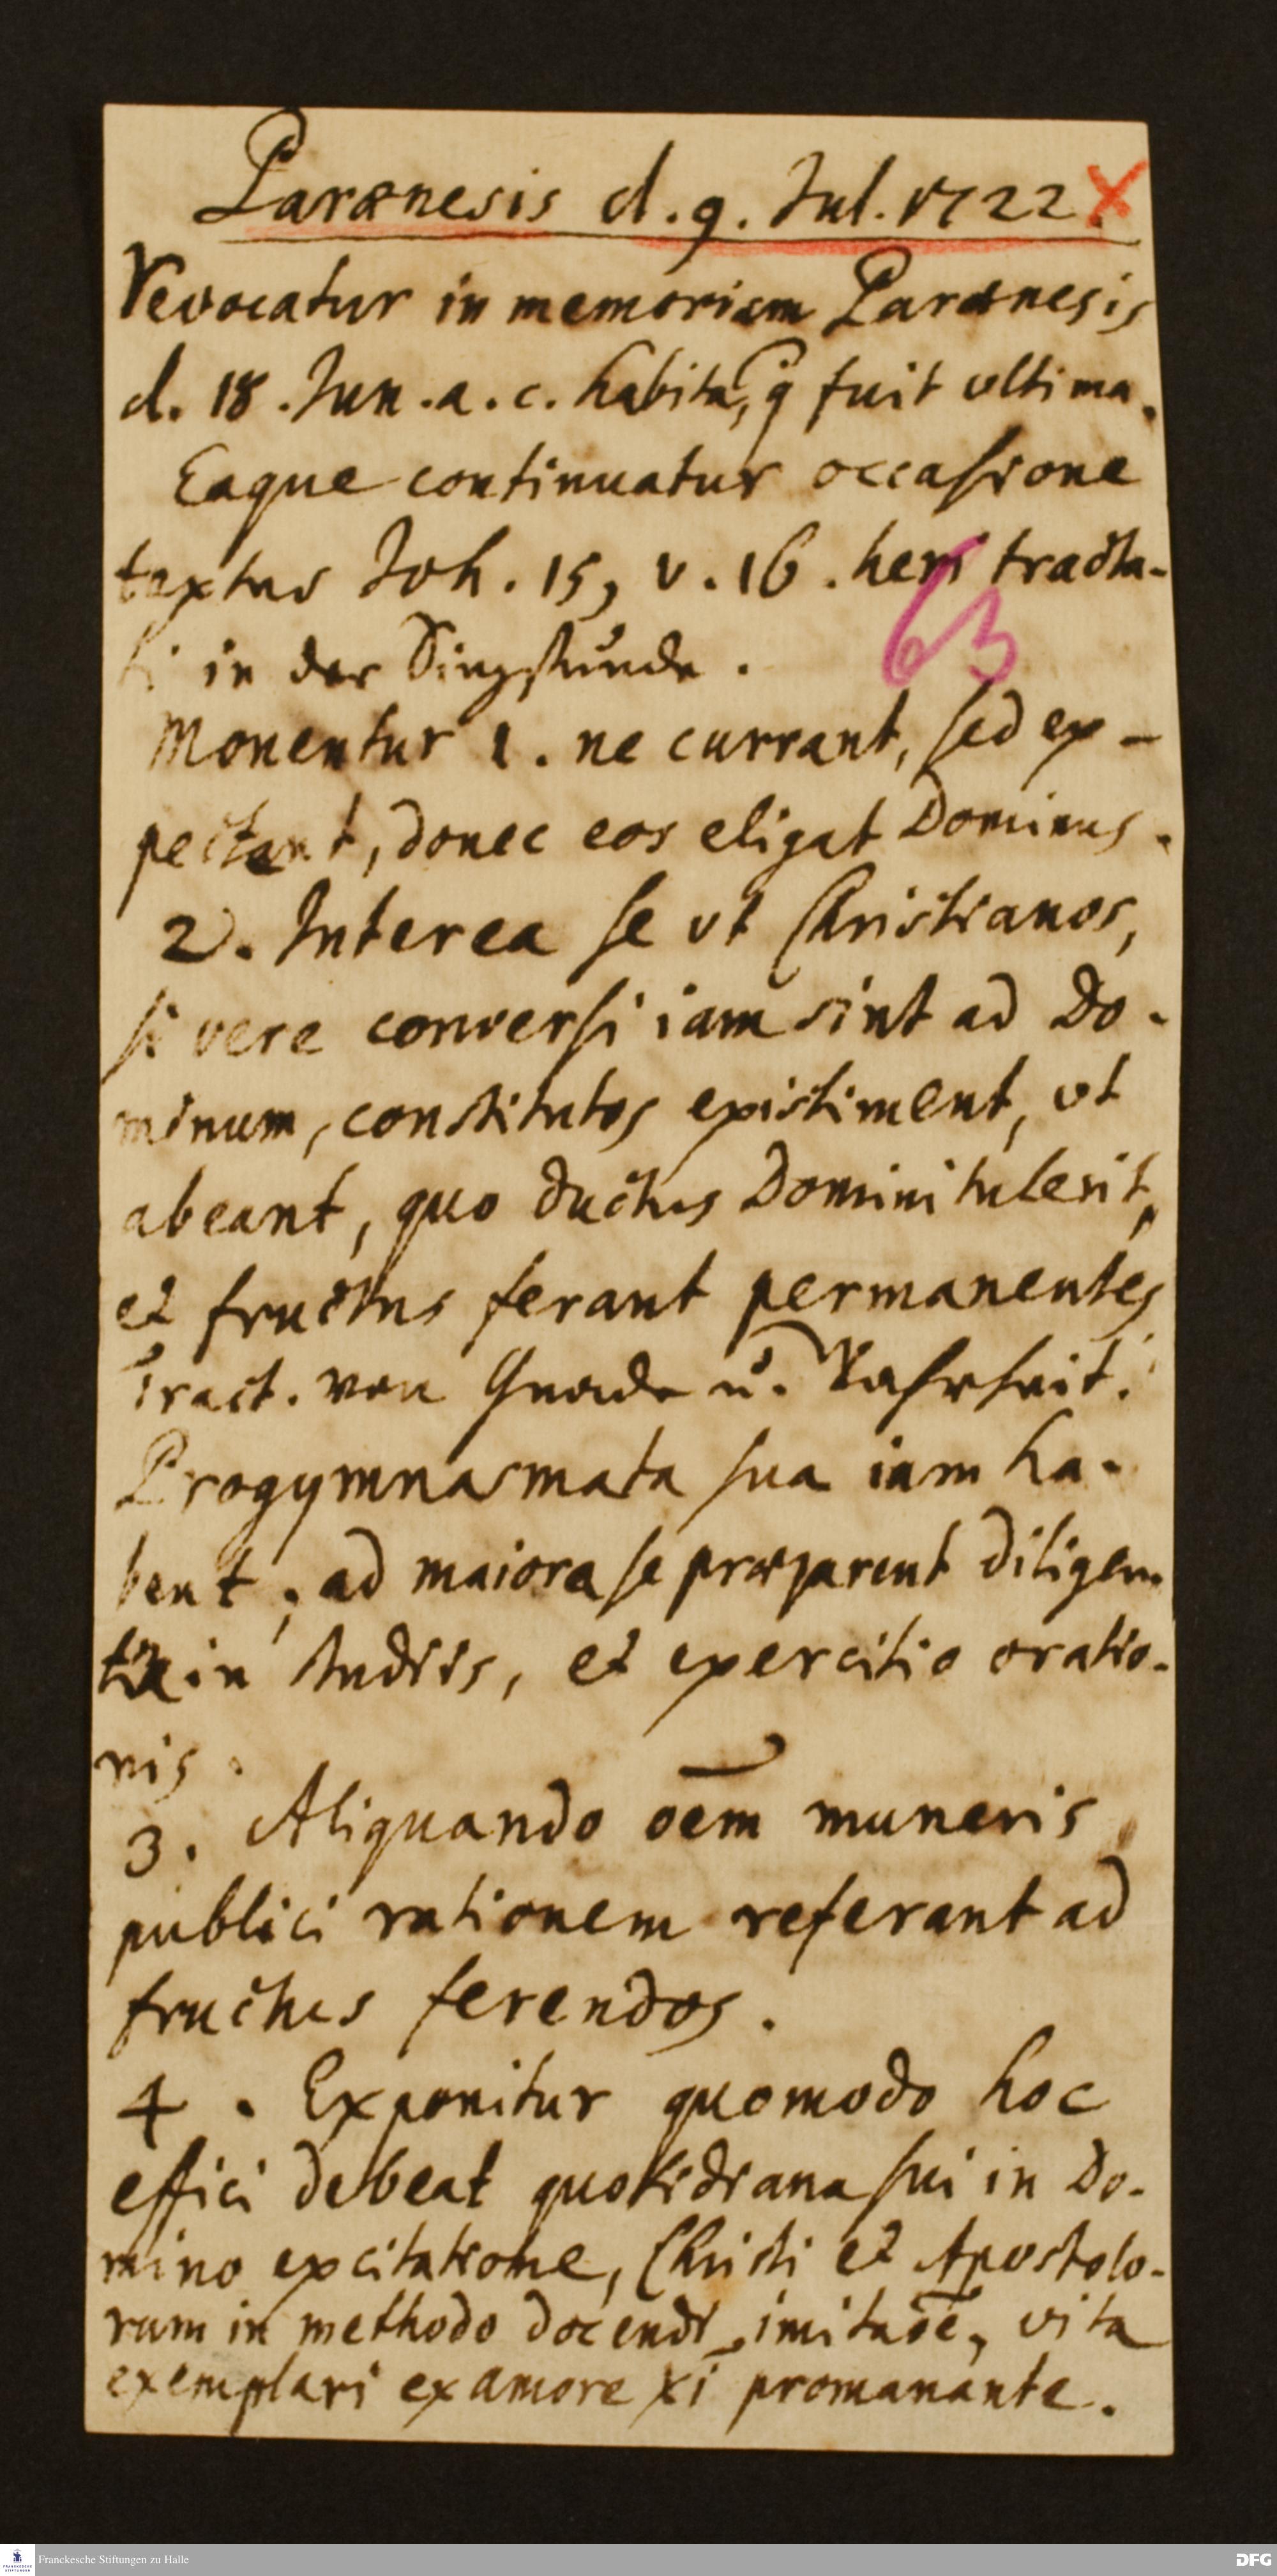 Parænesis d. 9. Jul. 1722. X
Revocatur in memoriam Parænesis
d. 18. Jun. a. c. habita, q̃ fuit vltima.
Eaque continuatur occasione
textus Joh. 15, v. 16. heri tracta-
ti in der Singstunde.
63
Monentur 1. ne currant, sed ex-
pectent, donec eos eligat Dominus.
2. Interea se vt Christianos,
si vere conversi iam sint ad Do-
minum, constitutos existiment, vt
abeant, quo ductus Domini tulerit,
et fructus ferant permanentes
Tract. von Gnade u. Wahrheit.
Progymnasmata sua iam ha-
bent; ad maiora se præparent diligen
tia in studiis, et exercitio oratio-
nis.
3. Aliquando oēm muneris
publici rationem referant ad
fructus ferendos.
4. Exponitur quomodo hoc
effici debeat quotidiana sui in Do-
mino excitatione, Christi et Apostolo-
rum in methodo docendi imitaõe, vita
exemplari ex amore Xi promanante.
Franckesche Stiftungen zu Halle
DFG